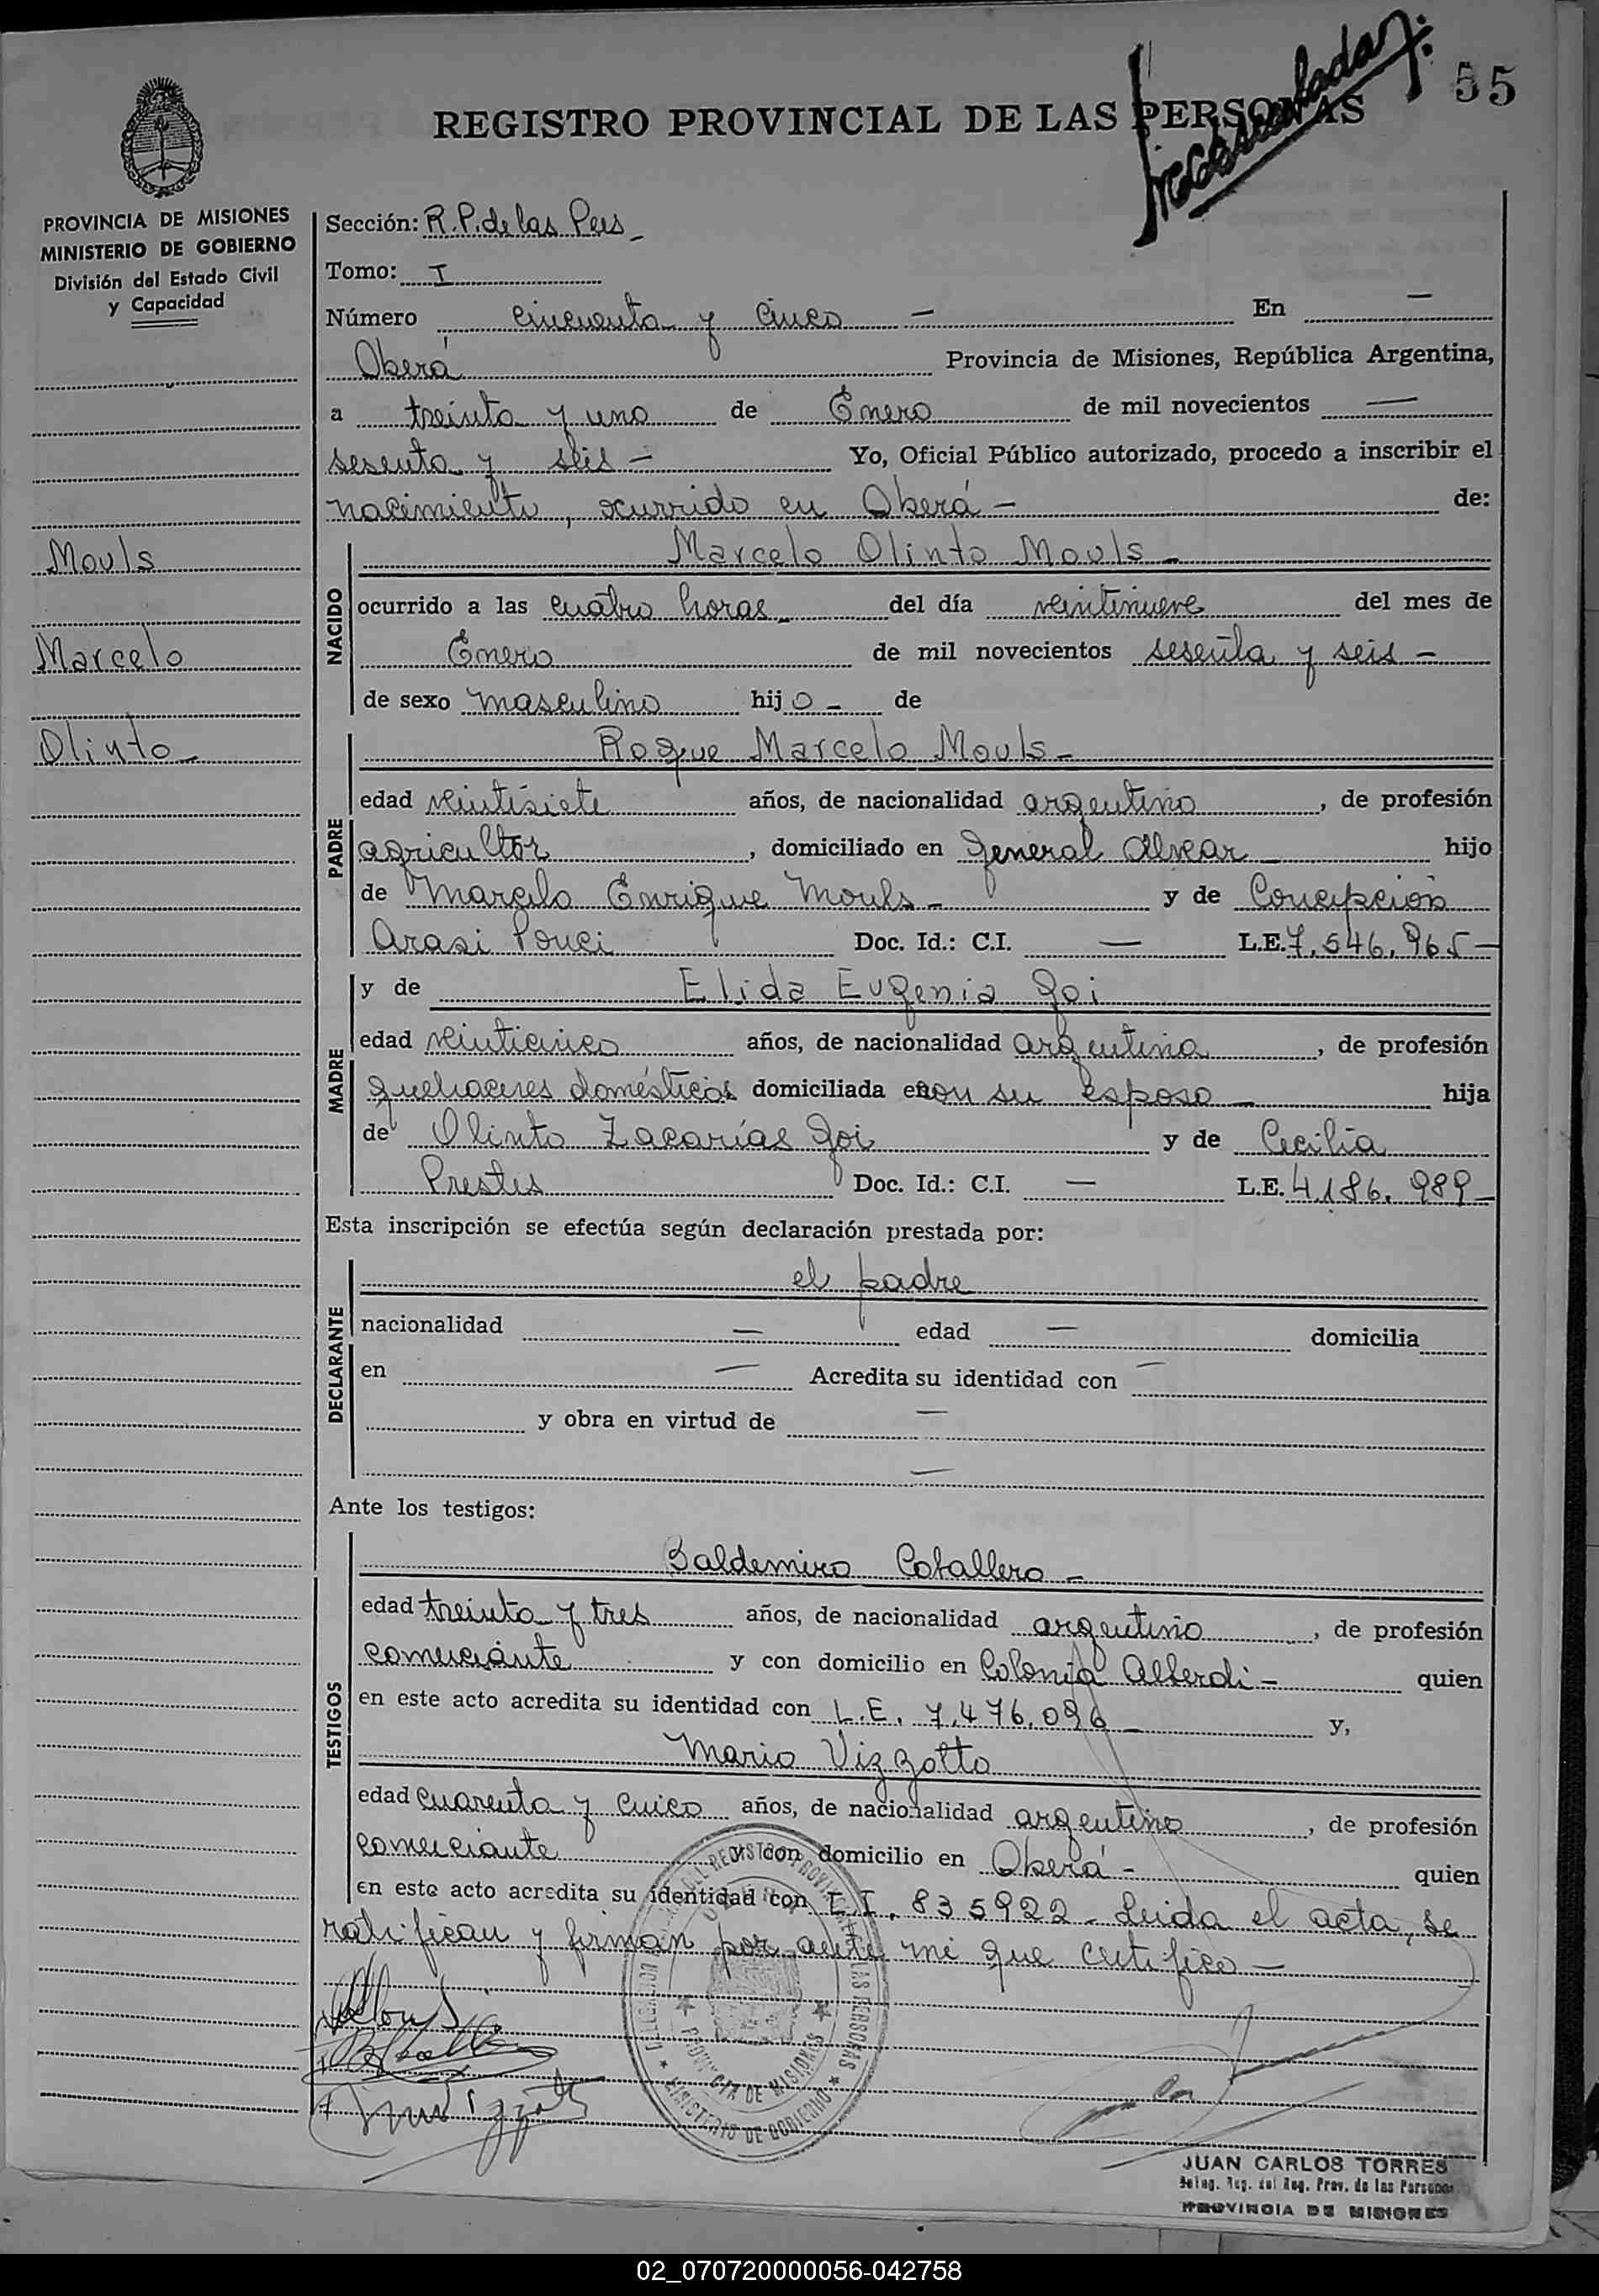 55
REGISTRO PROVINCIAL DE LAS PERSONAS
PROVINCIA DE MISIONES
MINISTERIO DE GOBIERNO
División del Estado Civil
y Capacidad
Mouls
Marcelo
Olinto
Sección: R. P. de las Pers
Tomo: I
Número cincuenta y cinco — En —
Oberá Provincia de Misiones, República Argentina,
a treinta y uno de Enero de mil novecientos —
sesenta y seis — Yo, Oficial Público autorizado, procedo a inscribir el
nacimiento, ocurrido en Oberá — de:
NACIDO
Marcelo Olinto Mouls —
ocurrido a las cuatro horas — del día veintinueve del mes de
Enero de mil novecientos sesenta y seis —
de sexo masculino hijo — de
PADRE
Roque Marcelo Mouls —
edad veintisiete años, de nacionalidad argentino, de profesión
agricultor, domiciliado en General Alvear — hijo
de Marcelo Enrique Mouls — y de Concepción
Arasi Ponci Doc. Id.: C.I. — L.E. 7.546.965 —
MADRE
y de Elida Eugenia Goi
edad veinticinco años, de nacionalidad argentina, de profesión
quehaceres domésticos domiciliada con su esposo — hija
de Olinto Zacarías Goi y de Cecilia
Prestes Doc. Id.: C.I. — L.E. 4.186.989 —
Esta inscripción se efectúa según declaración prestada por:
DECLARANTE
el padre
nacionalidad — edad — domicilia
en — Acredita su identidad con —
y obra en virtud de —
—
Ante los testigos:
TESTIGOS
Baldemiro Caballero —
edad treinta y tres años, de nacionalidad argentino, de profesión
comerciante y con domicilio en Colonia Alberdi — quien
en este acto acredita su identidad con L.E. 7.476.096 — y,
Mario Vizzotto
edad cuarenta y cinco años, de nacionalidad argentino, de profesión
comerciante y con domicilio en Oberá — quien
en este acto acredita su identidad con C.I. 835922 — Leída el acta, se
ratifican y firman por ante mí que certifico —
PROVINCIA DE MISIONES
MINISTERIO DE GOBIERNO
JUAN CARLOS TORRES
Reg. Prov. de las Personas
PROVINCIA DE MISIONES
02_070720000056-042758